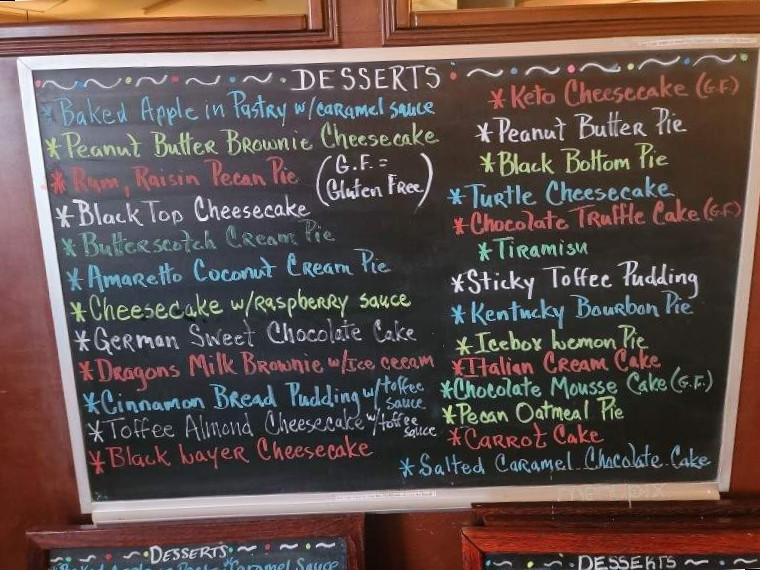 DESSERTS
* Baked Apple in Pastry w/caramel sauce
* Peanut Butter Brownie Cheesecake
* Rum, Raisin Pecan Pie
(G.F. =
Gluten Free)
* Black Top Cheesecake
* Butterscotch Cream Pie
* Amaretto Coconut Cream Pie
* Cheesecake w/Raspberry sauce
* German Sweet Chocolate Cake
* Dragons Milk Brownie w/Ice cream
* Cinnamon Bread Pudding w/toffee
sauce
* Toffee Almond Cheesecake w/toffee
sauce
* Black Layer Cheesecake
* Keto Cheesecake (G.F.)
* Peanut Butter Pie
* Black Bottom Pie
* Turtle Cheesecake
* Chocolate Truffle Cake (G.F.)
* Tiramisu
* Sticky Toffee Pudding
* Kentucky Bourbon Pie
* Icebox Lemon Pie
* Italian Cream Cake
* Chocolate Mousse Cake (G.F.)
* Pecan Oatmeal Pie
* Carrot Cake
* Salted Caramel Chocolate Cake
DESSERTS
Baked Apple in Caramel Sauce
DESSERTS